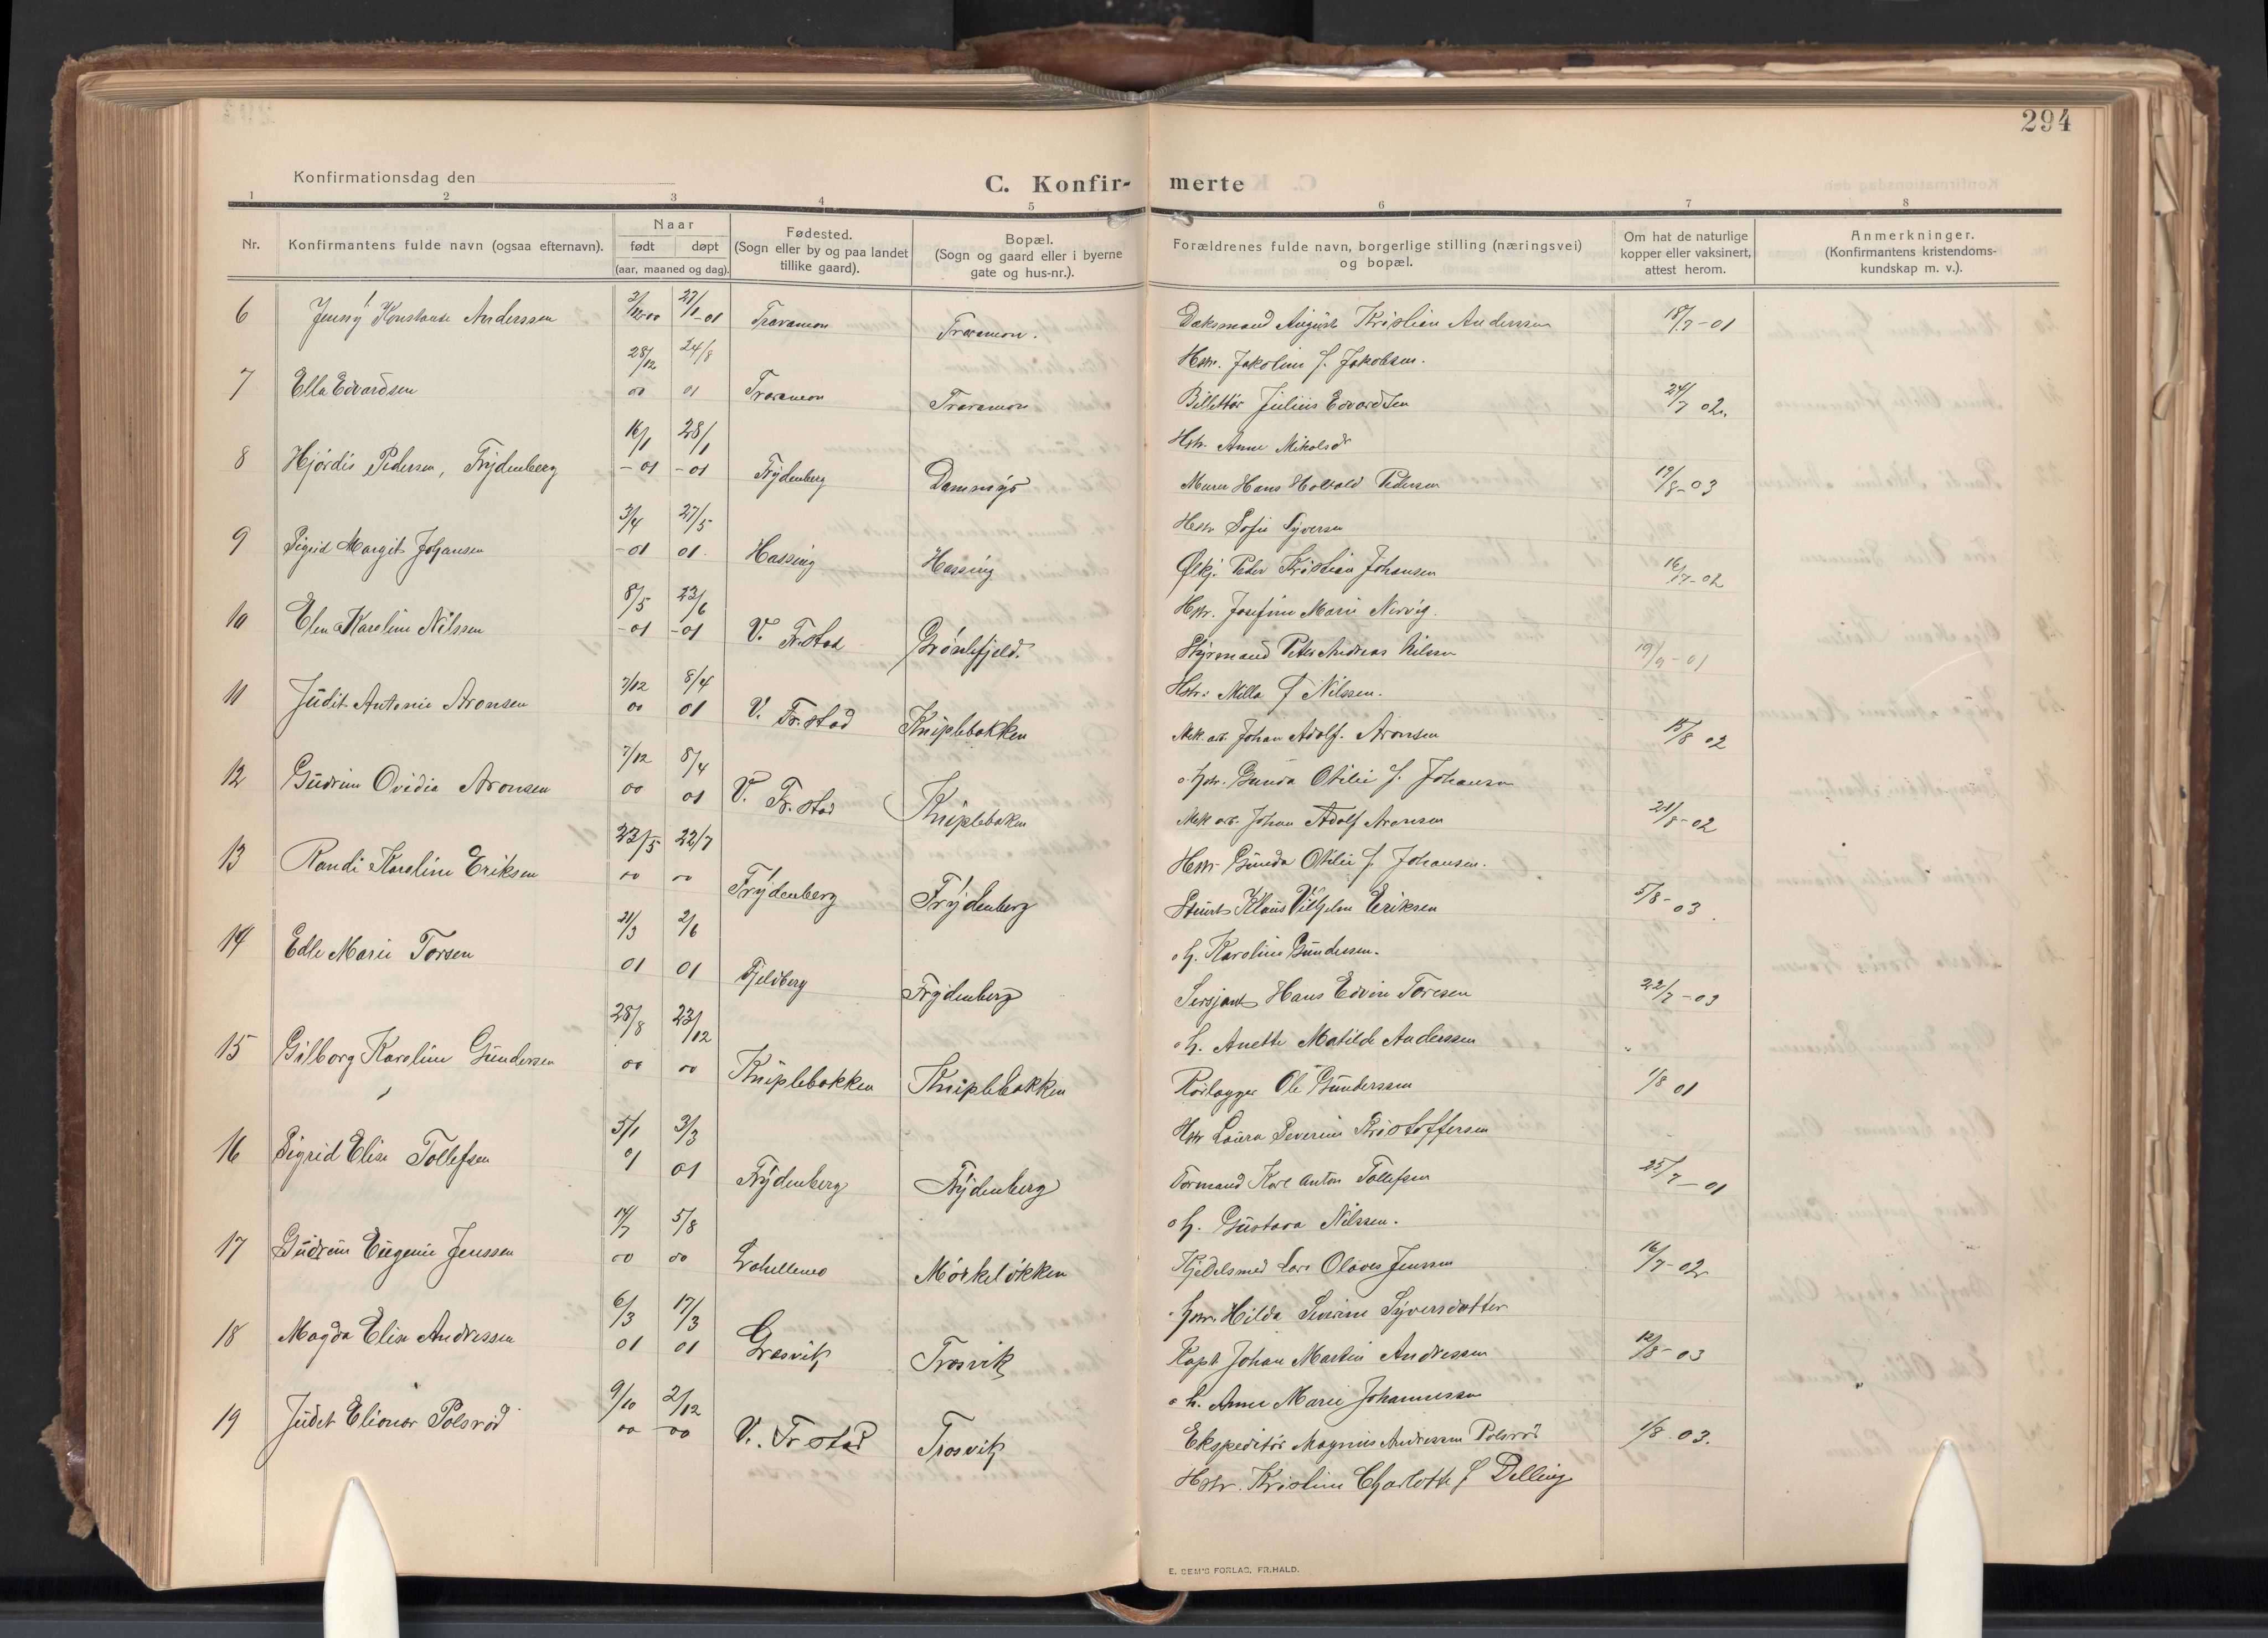 294
Konfirmationsdag den
C. Konfir- merte
1 2 3 4 5 6 7 8
Nr.
Konfirmantens fulde navn (ogsaa efternavn).
Naar
født døpt
(aar, maaned og dag).
Fødested.
(Sogn eller by og paa landet
tillike gaard).
Bopæl.
(Sogn og gaard eller i byerne
gate og hus-nr.).
Forældrenes fulde navn, borgerlige stilling (næringsvei)
og bopæl.
Om hat de naturlige
kopper eller vaksinert,
attest herom.
Anmerkninger.
(Konfirmantens kristendoms-
kundskap m. v.).
6 Jenny Konstanse Anderssen 27/1-01 Traramon Traramon. August Kristian Anderssen 18/7-01
28/12 24/8 Hstr. Jakobine f. Jakobsen.
7 Ella Edvardsen 00 01 Traramon Traramon Billettør Julius Edvardsen 24/7 02.
16/1 28/1 Hstr. Anne
8 Hjördis Pedersen, Frydenberg -01 -01 Frydenberg Murer Hans Pedersen 19/8-03
3/4 27/5 Hstr Sofie Syversen
9 Sigrid Margit Johansen -01 01. Hassing Hassing Peder Kristian Johansen 16/7-02
8/5 23/6 Hstr. Josefine Marie
10 Elen Karoline Nilssen -01 -01 V. Fr.stad Grönlifjeld. Styrmand Peter Andreas Nilssen 19/9-01
7/12 8/4 Hstr. Milla f Nilssen.
11 Judit Antonie Aronsen 00 01 V. Fr.stad Kniplebakken Mek. arb. Johan Adolf. Aronsen 15/8 02
7/12 8/4 o. hstr. Gunda Otilie f. Johansen
12 Gudrun Ovidia Aronsen 00 01 V. Fr.stad Kniplebaken Mek arb. Johan Adolf Aronsen 21/8-02
23/5 22/7 Hstr. Gunda Otilie f. Johansen.
13 Randi Karoline Eriksen 00 00 Frydenberg Frydenberg Stuert Klaus Vilhjelm Eriksen 5/8-03.
21/3 2/6 o h. Karoline Gundersen.
14 Edle Marie Torsen 01 01 Fjeldberg Frydenberg Sersjant Hans Edvin Toresen 22/7-03
28/8 23/12 o h. Anette Matilde Anderssen
15 Gilborg Karoline Gundersen 00 00 Kniplebakken Kniplebakken Rørlægger Ole Gunderssen 1/8 01
5/1 3/3 Hstr Laura Severine Kristoffersen
16 Sigrid Elise Tollefsen 01 01 Frydenberg Frydenberg Formand Karl Anton Tollefsen 25/7-01
14/7 5/8 o h. Gustava Nilssen.
17 Gudrun Eugenie Jenssen 00 00 Mørkeløkken Kjedelsmed Lars Olaves Jenssen 16/7-02
6/3 17/3 hstr. Hilda Severine Syversdatter
18 Magda Elise Andressen 01 01 Gresvik Trosvik Kapt Johan Martin Andressen 12/8-03
9/10 2/12 o h. Anne Marie Johannessen
19 Judit Elionor Polsrød 00 -00 V. Fr stad Trosvik Ekspeditør Magnus Andressen Polsrød 1/8 03.
Hstr. Kristine Charlotte f Delling
E. SEM'S FORLAG, FR.HALD.